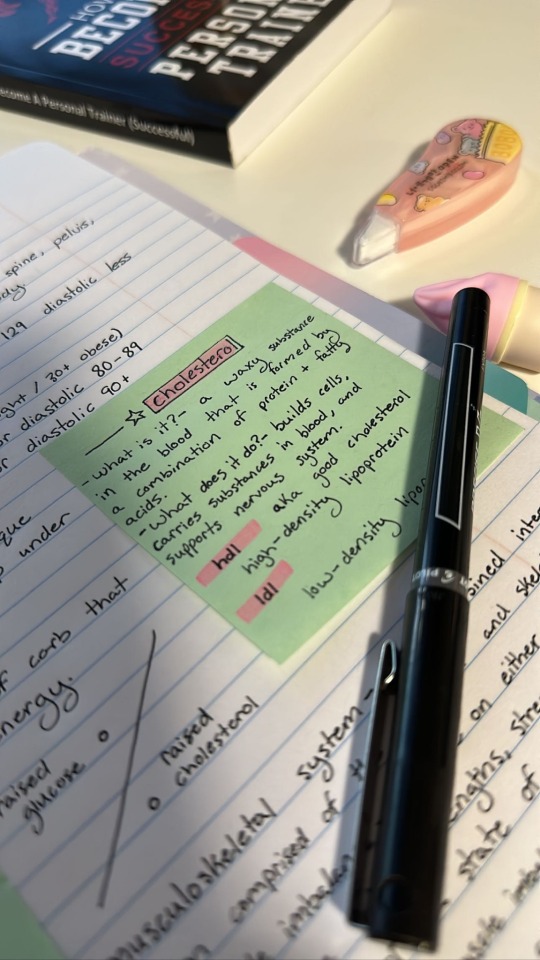 HOW
BECO
SUCCESS
PERSON
TRAINE
ecome A Personal Trainer (Successful)
spine, pelvis,
dy.
129 diastolic less
ght / 30+ obese)
or diastolic 80-89
r diastolic 90+
que
under
f carb that
nergy.
raised
glucose
raised
cholesterol
cholesterol
- what is it?- a waxy substance
in the blood that is formed by
a combination of protein + fatty
acids.
- what does it do?- builds cells,
carries substances in blood, and
supports nervous system.
hdl aka good cholesterol
high-density lipoprotein
ldl
low-density lipo
musculoskeletal system -
n comprised of
imbalan
bined inte
and skel
on either
ngths, stre
state of
scle imba